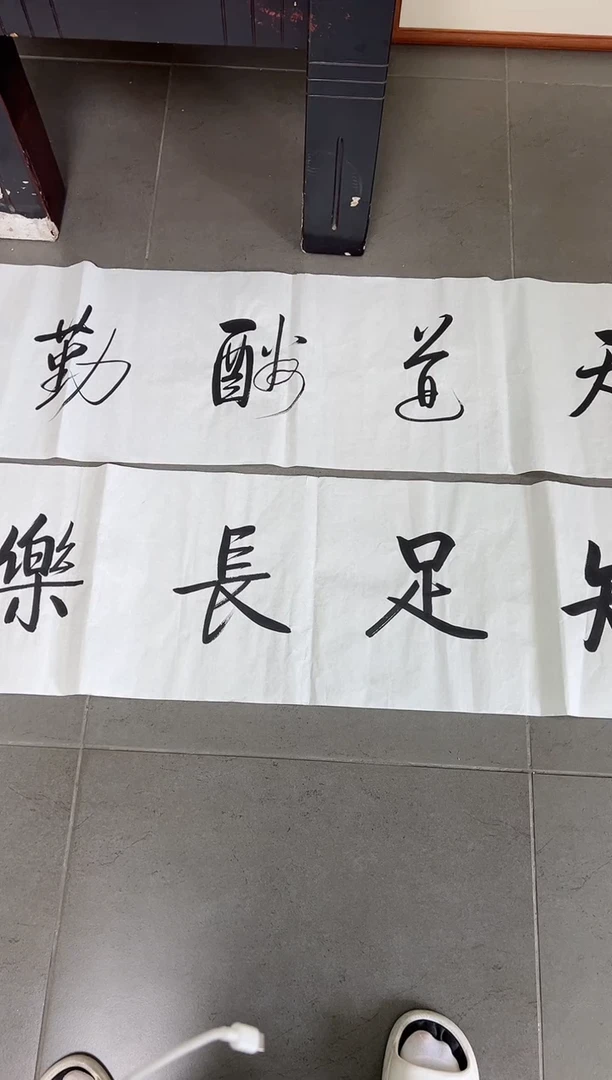 天道酬勤
知足長樂